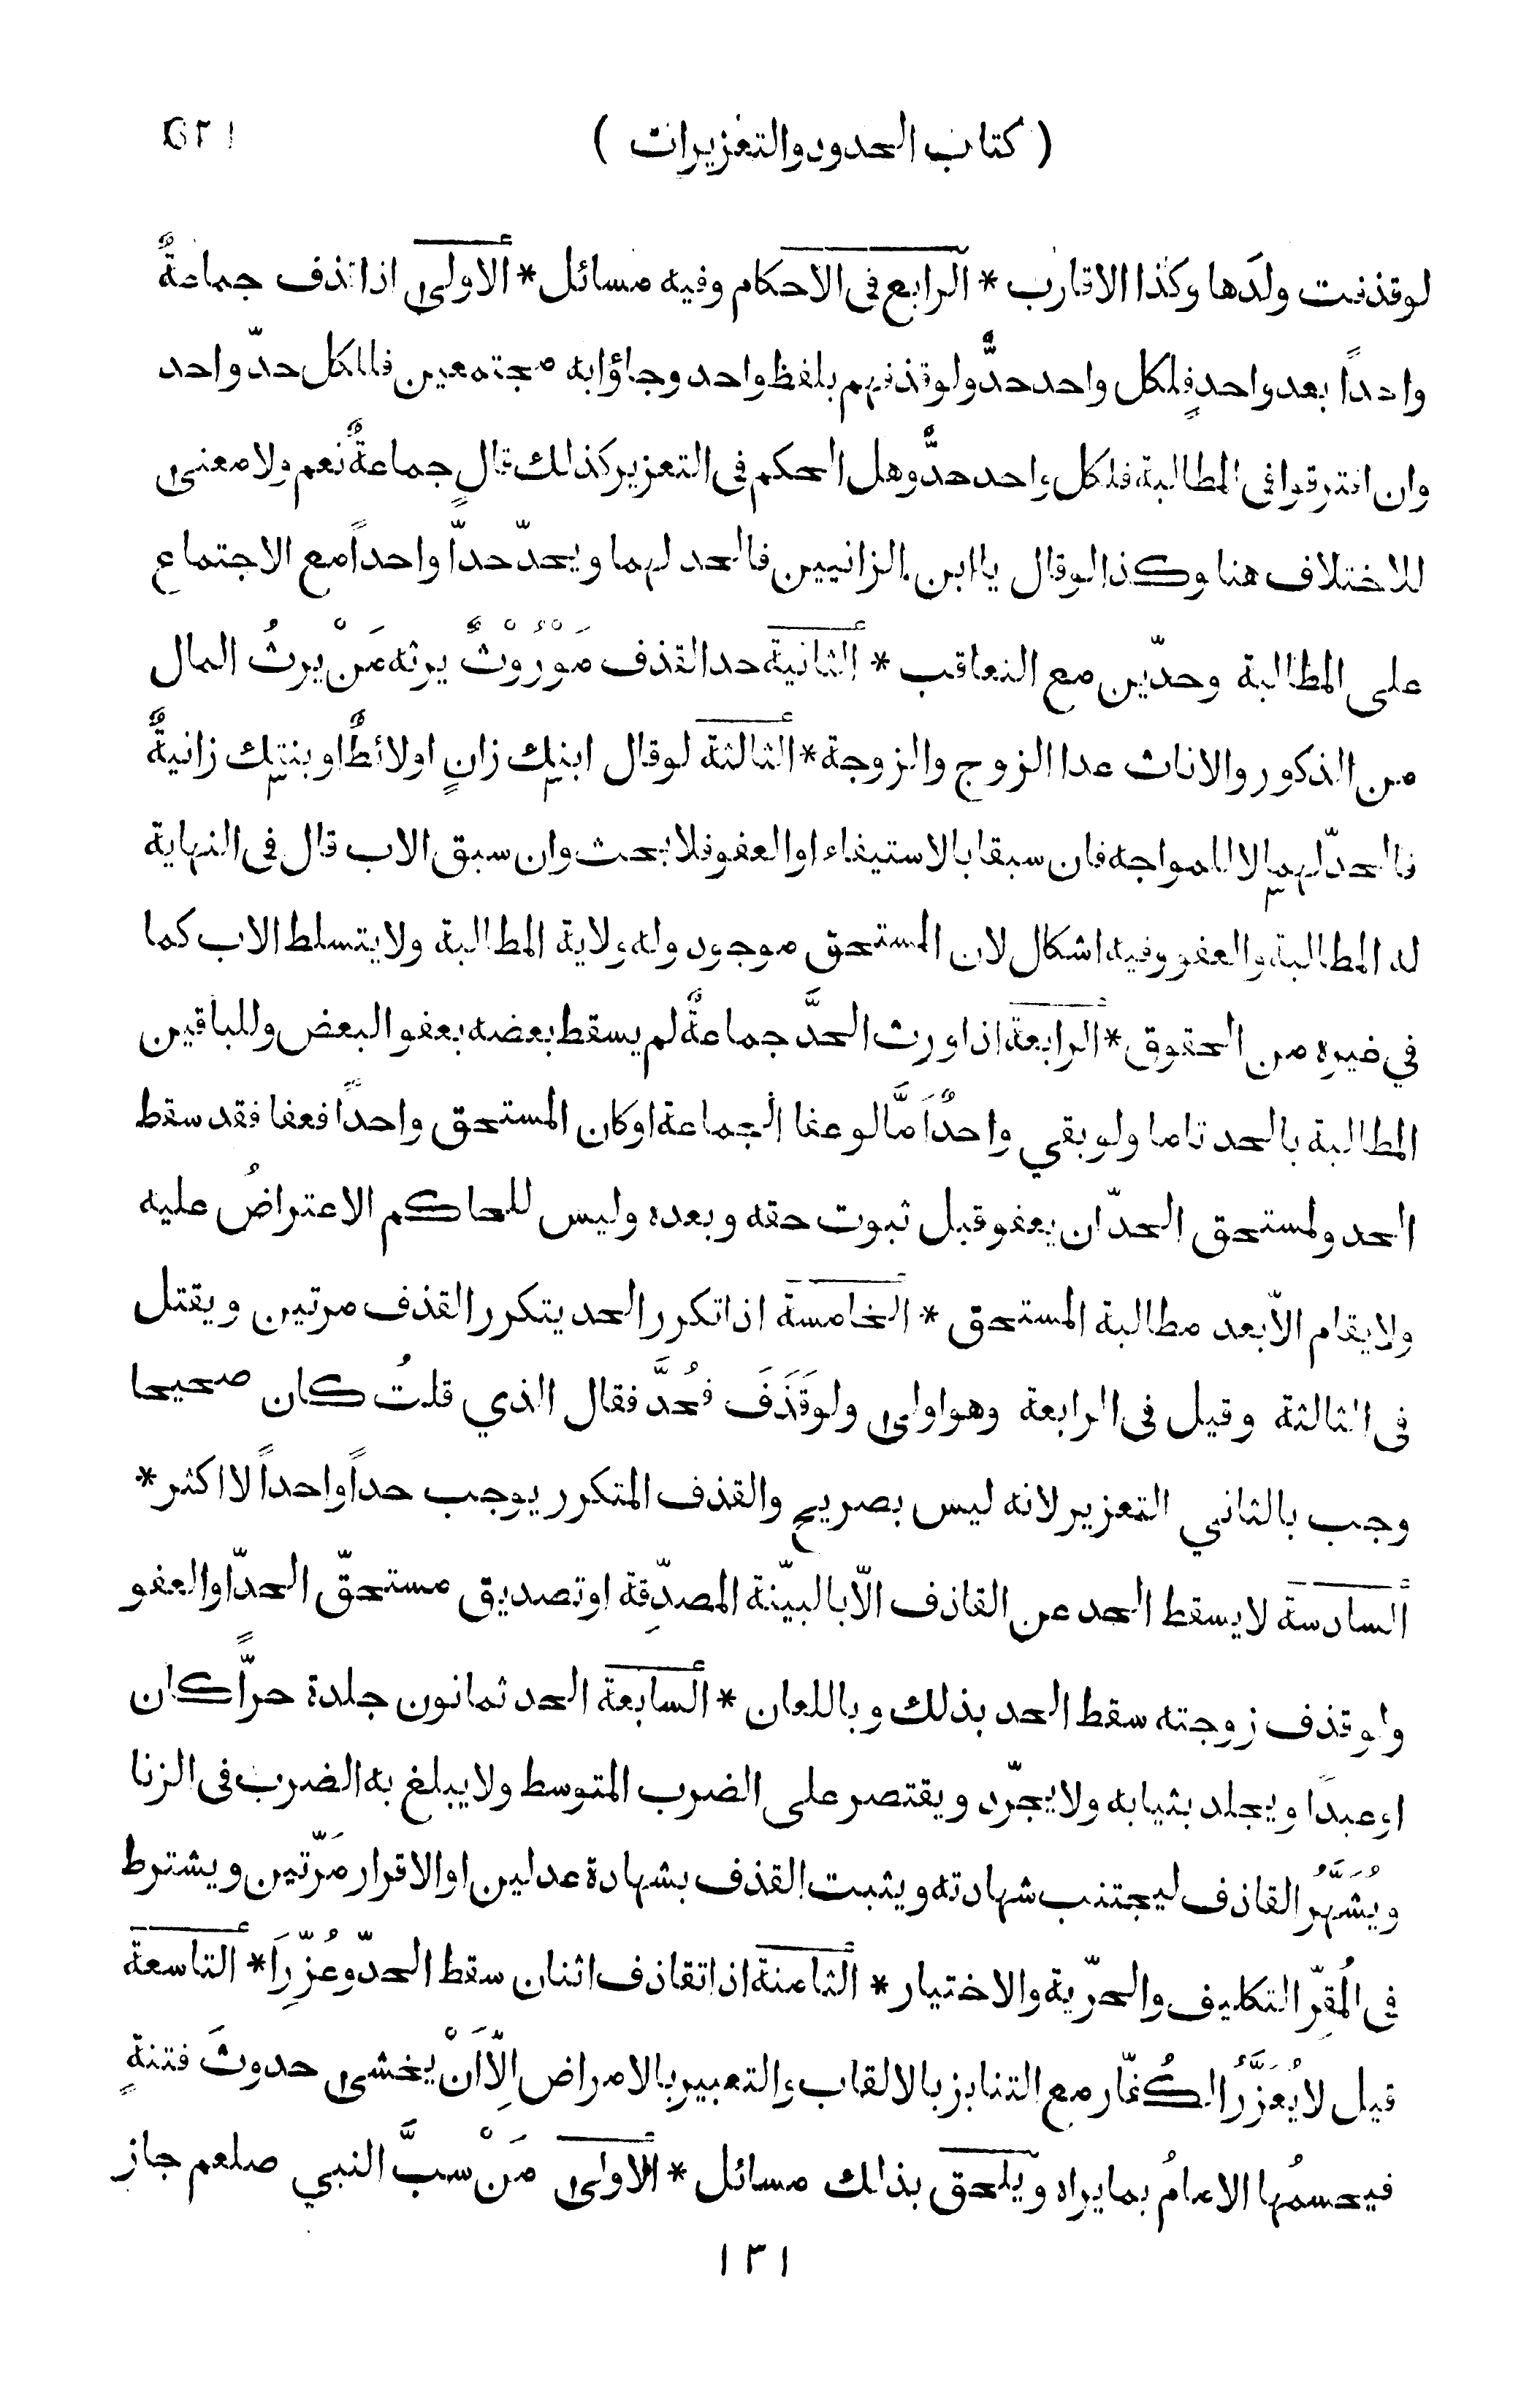 ( كتاب الحدود والتعزيرات )
لو قذفت ولدَها وكذا الاقارب * الرابع فى الاحكام وفيه مسائل * الاولى اذا قذف جماعةٌ
واحداً بعد واحدٍ فلكل واحد حدٌّ ولو قذفهم بلفظ واحد وجاؤا به مجتمعين فللكل حدّ واحد
وان افترقوا فى المطالبة فلكل واحد حدٌّ وهل الحكم فى التعزير كذلك قال جماعةٌ نعم ولا معنى
للاختلاف هنا وكذا لو قال ياابن الزانيين فالحد لهما ويحدّ حدّاً واحداً مع الاجتماع
على المطالبة وحدّين مع التعاقب * الثانية حد القذف مَوْرُوْثٌ يرثه مَنْ يرثُ المال
من الذكور والاناث عدا الزوج والزوجة * الثالثة لو قال ابنك زانٍ او لائطٌ او بنتك زانيةٌ
فالحدّ لهما لا للمواجه فان سبقا بالاستيفاء او العفو فلا بحث وان سبق الاب قال فى النهاية
له المطالبة والعفو وفيه اشكال لان المستحق موجود وله ولاية المطالبة ولا يتسلط الاب كما
في غيره من الحقوق * الرابعة اذا ورث الحدَّ جماعةٌ لم يسقط بعضه بعفو البعض وللباقين
المطالبة بالحد تاما ولو بقي واحدٌ اَمَّا لو عفا الجماعة او كان المستحق واحداً فعفا فقد سقط
الحد ولمستحق الحدّ ان يعفو قبل ثبوت حقه وبعده وليس للحاكم الاعتراضُ عليه
ولا يقام الاّ بعد مطالبة المستحق * الخامسة اذا تكرر الحد بتكرر القذف مرتين ويقتل
فى الثالثة وقيل فى الرابعة وهو اولى ولو قَذَفَ فحُدَّ فقال الذي قلتُ كان صحيحا
وجب بالثاني التعزير لانه ليس بصريح والقذف المتكرر يوجب حداً واحداً لا اكثر *
السادسة لا يسقط الحد عن القاذف الاّ بالبيّنة المصدّقِة او تصديق مستحقّ الحدّ او العفو
ولو قذف زوجته سقط الحد بذلك وباللعان * السابعة الحد ثمانون جلدة حرّاً كان
او عبداً ويجلد بثيابه ولا يجرّد ويقتصر على الضرب المتوسط ولا يبلغ به الضرب فى الزنا
ويُشَهَّرُ القاذف ليجتنب شهادته ويثبت القذف بشهادة عدلين او الاقرار مَرّتين ويشترط
فى المُقِرّ التكليف والحرّية والاختيار * الثامنة اذا تقاذف اثنان سقط الحدّ وعُزّرِاَ * التاسعة
قيل لا يُعَزَّرُ الكُفّار مع التنابز بالالقاب والتعيير بالامراض اِلّا اَنْ يخشى حدوثَ فتنةٍ
فيحسمُها الامامُ بما يراه ويلحق بذلك مسائل * الاولى مَنْ سبَّ النبي صلعم جاز
١٣١